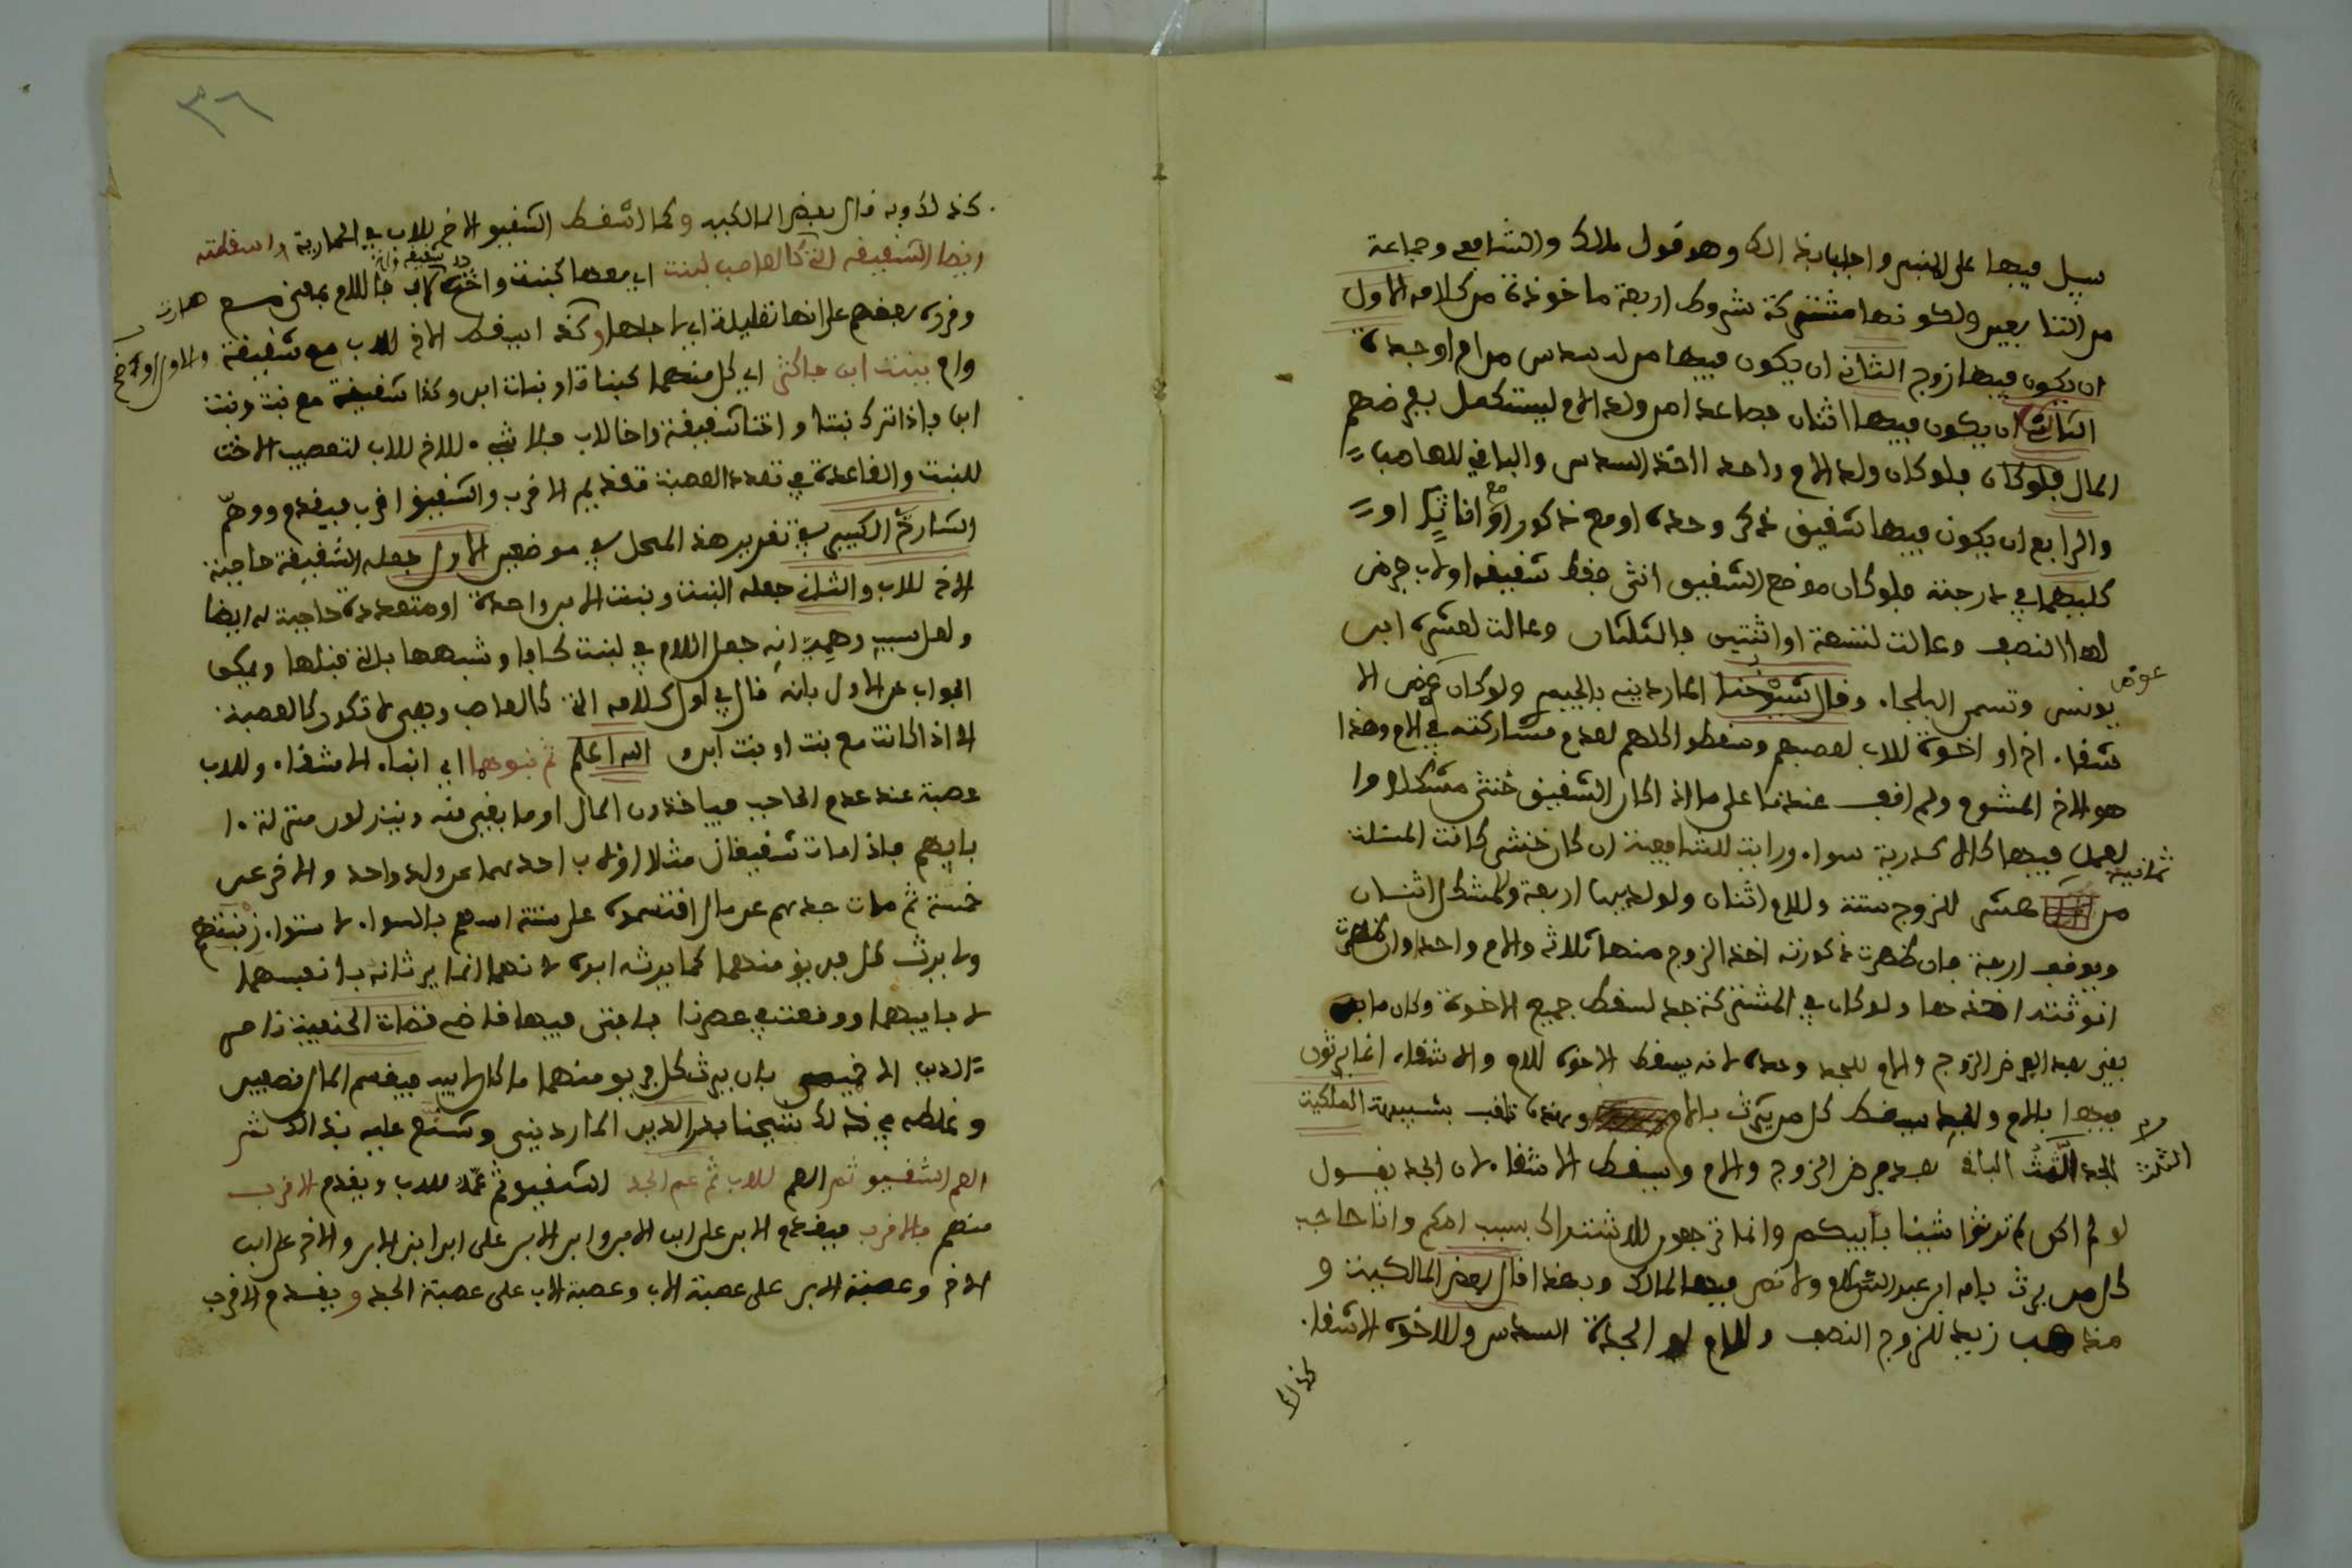 سيل فيها على المنبر واجاب بذالك وهو قول مالك والشافعي وجماعة
من التابعين ولكونها مشتركة شروط اربعة ماخوذة من كلامه الاول
ان يكون فيها زوج الثاني ان يكون فيها من له سدس من ام او جدة
الثالث ان يكون فيها اثنان فصاعدا من ولد الام ليستكمل بفرضهم
المال فلو كان ولد الام واحدا اخذ السدس والباقي للعاصب
والرابع ان يكون فيها شقيق ذكر وحده او مع ذكور او مع اناث او
كليهما في درجته فلو كان موضع الشقيق انثى فقط شقيقة او لاب فرض
لها النصف وعالت لتسعة او اثنتين فالثلثان وعالت لعشرة ابن
يونس وتسمى البلجاء وقال شيوخنا الماردينيه بالجيم ولو كان عوض الا
عوض
شقاء اخ او اخوة للاب لعصبهم وسقطوا كلهم لعدم مشاركته في الام وهذا
هو الاخ المشوم ولم اقف عندنا على ما اذا كان الشقيق خنثى مشكلا وا
لعمل فيها كالاكدرية سواء ورايت للشافعية ان كان خنثى كانت المسئلة
من ثمانية عشر للزوج ستة وللام اثنان ولولديها اربعة وللمشكل اثنان
ويوقف اربعة فان ظهرت ذكورته اخذ الزوج منها ثلاثة والام واحدا وان ظهرت
انوثته اخذها ولو كان في المشتركة جد لسقط جميع الاخوة وكان ما
بقي بعد الفرض الزوج والام للجد وحده لانه يسقط الاخوة للام والاشقاء انما يرثون
فيها بالام والجد يسقط كل من يرث بالام وهذه تلقب بشبيهة المالكية
للجد الثلث الباقي بعد فرض الزوج والام ويسقط الاشقاء لان الجد يقول
الثلث
لو لم اكن لم ترثوا شيئا بابيكم وانما ترجعون للاشتراك بسبب امكم وانا حاجب
كل من يرث بام ابن عبد السلام ولا نص فيها لمالك وبهذا قال بعض المالكيين و
مذهب زيد للزوج النصف وللام او الجدة السدس وللاخوة الاشقاء
كذالك
٣٦
كذالك وبه قال بعض المالكيين وكما اسقط الشقيق الاخ للاب في الحمارية واسقطته
ايضا الشقيقة التي كالعاصب لبنت اي معها كبنت واخت شقيقة واخ لاب فاللام بمعنى مع
وقرره بعضهم على انها تعليلية اي لاجلها وكذا يسقط الاخ للاب مع شقيقة والاول اوضح
وام ببنت ابن فاكثر اي كل منهما كبنات او بنات ابن وكذا شقيقة مع بنت وبنت
ابن فاذا ترك بنتا واختا شقيقة واخا لاب فلا شيء للاخ للاب لتعصيب الاخت
للبنت والقاعدة في تعدد العصبة تقديم الاقرب والشقيق اقرب فيقدم ووهم
الشارح الكبير في تقرير هذا المحل في موضعين الاول جعله الشقيقة حاجبة
الاخ للاب والثاني جعله البنت وبنت الابن واحدة او متعددة حاجبة له ايضا
ولعل سبب وهمه انه جعل اللام في لبنت كافا وشبهها بالتي قبلها ويمكن
الجواب عن الاول بانه قال في اول كلامه التي كالعاصب وهي لا تكون كالعصبة
الا اذا كانت مع بنت او بنت ابن و الله اعلم ثم بنوهما اي ابناء الاشقاء وللاب
عصبة عند عدم الحاجب فياخذون المال او ما بقي منه وينزلون منزلة ا
بايهم فاذا مات شقيقان مثلا او لاب احدهما عن ولد واحد والاخر عن
خمسة ثم مات جدهم عن مال اقتسموه على ستة اسهم بالسواء لاستواء رتبتهم
ولا يرث كل فريق منهما كما يرثه ابوه لانهما انما يرثانه بانفسهما
لا بابيهما ووقعت في عصرنا فافتى فيها قاضي قضاة الحنفية ناصر
الدين الاخميمي بان يرث كل فريق منهما ما كان لابيه فيقسم المال نصفين
وغلطه في ذلك شيخنا بدر الدين المارديني وشنع عليه بذالك ثم
العم الشقيق ثم العم للاب ثم عم الجد الشقيق ثم عمه للاب ويقدم الاقرب
منهم فالاقرب فيقدم الابن على ابن الابن وابن الابن على ابن ابن الابن والاخ على ابن
الاخ وعصبة الابن على عصبة الاب وعصبة الاب على عصبة الجد ويقدم الاقرب